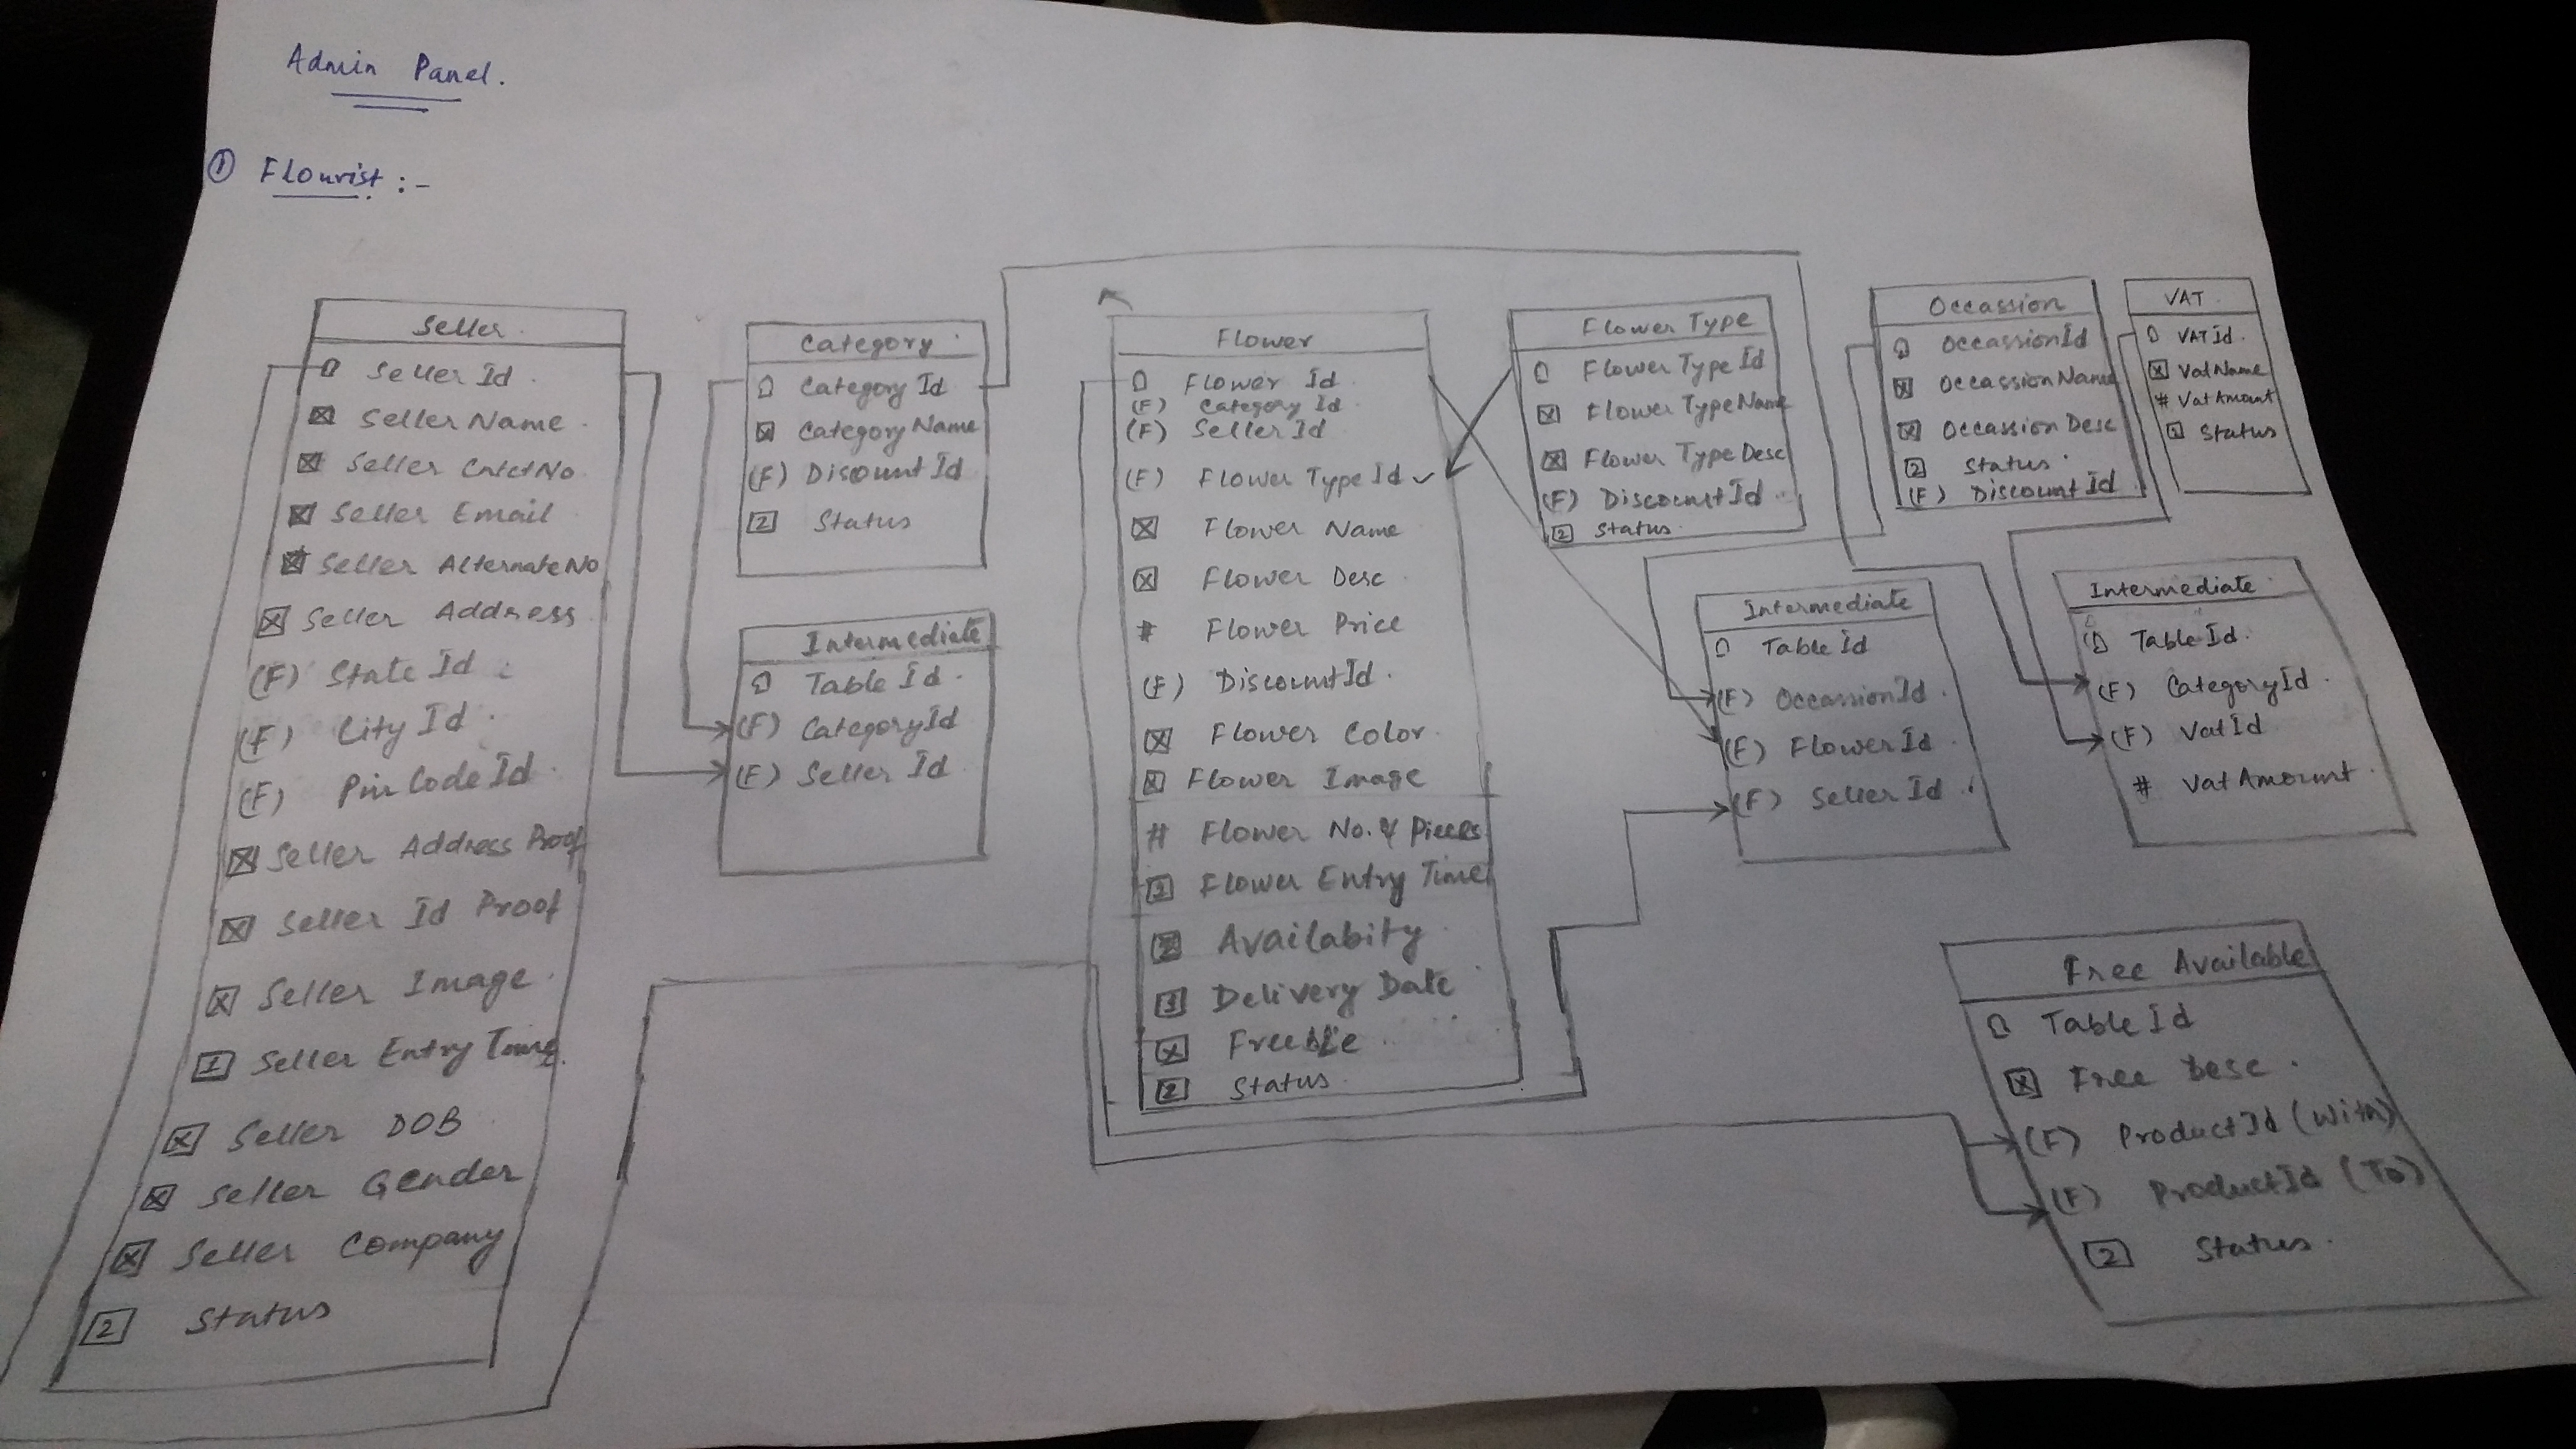 Admin Panel.
① Flourist :-
Seller.
Seller Id.
Seller Name.
Seller CntctNo.
Seller Email.
Seller AlternateNo
Seller Address
(F) State Id.
(F) City Id.
(F) PinCode Id.
Seller Address Proof
Seller Id Proof
Seller Image.
1 Seller Entry Timing.
Seller DOB.
Seller Gender
Seller Company
2 Status
Category.
Category Id
Category Name
(F) Discount Id
2 Status
Intermediate
Table Id.
(F) Category Id
(F) Seller Id
Flower
Flower Id.
(F) Category Id.
(F) Seller Id
(F) Flower Type Id
Flower Name
Flower Desc.
# Flower Price
(F) Discount Id.
Flower Color.
Flower Image
# Flower No. of Pieces
1 Flower Entry Time
2 Availabity.
1 Delivery Date.
2 Status.
Flower Type
Flower Type Id
Flower Type Name
Flower Type Desc
(F) Discount Id.
2 Status.
Intermediate
Table Id
(F) Occassion Id.
(F) Flower Id.
(F) Seller Id.
Occassion
Occassion Id
Occassion Name
Occassion Desc
2 Status.
(F) Discount Id
VAT.
VAT Id.
Vat Name
# Vat Amount
2 Status
Intermediate.
Table Id.
(F) Category Id.
(F) Vat Id
# Vat Amount.
Free Available
Table Id
Free Desc.
(F) Product Id (With)
(F) Product Id (To)
2 Status.